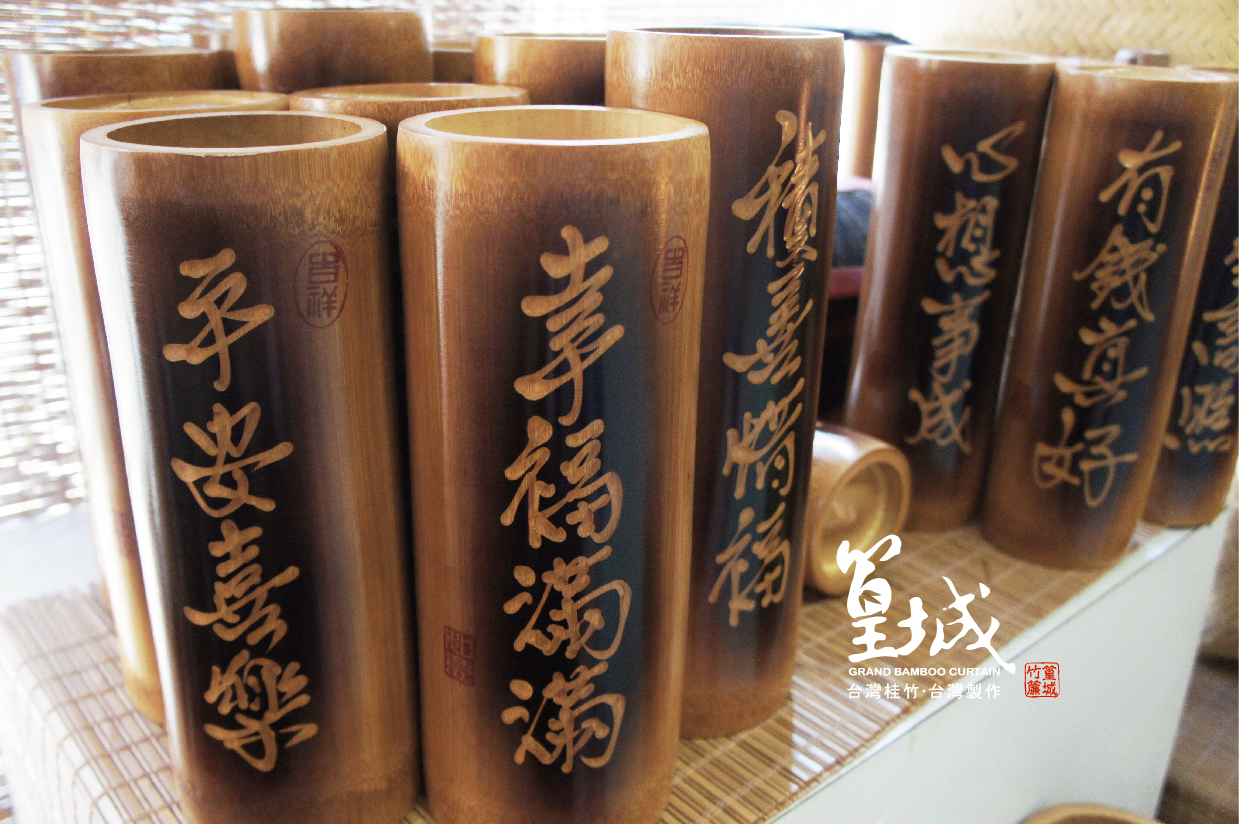 平安喜樂
吉祥
幸福滿滿
吉祥
積善惜福
心想事成
有錢真好
高照
篁城
GRAND BAMBOO CURTAIN
台灣桂竹·台灣製作
篁城
竹簾